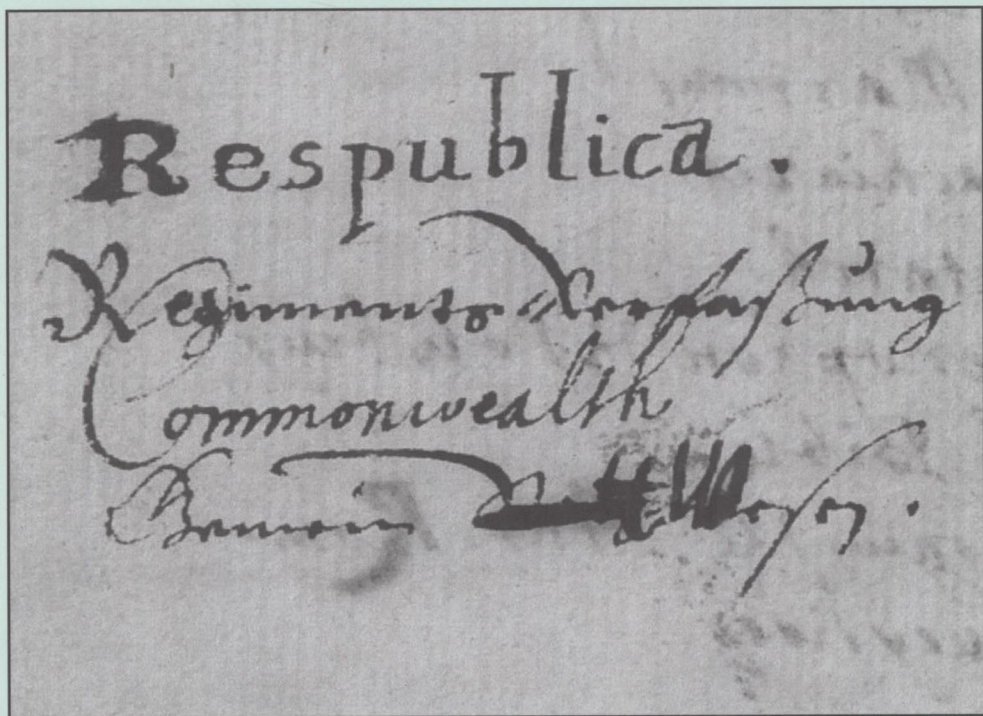 Respublica.
Regiments-Verfaßung
Commonwealth
Gemein Wesen.